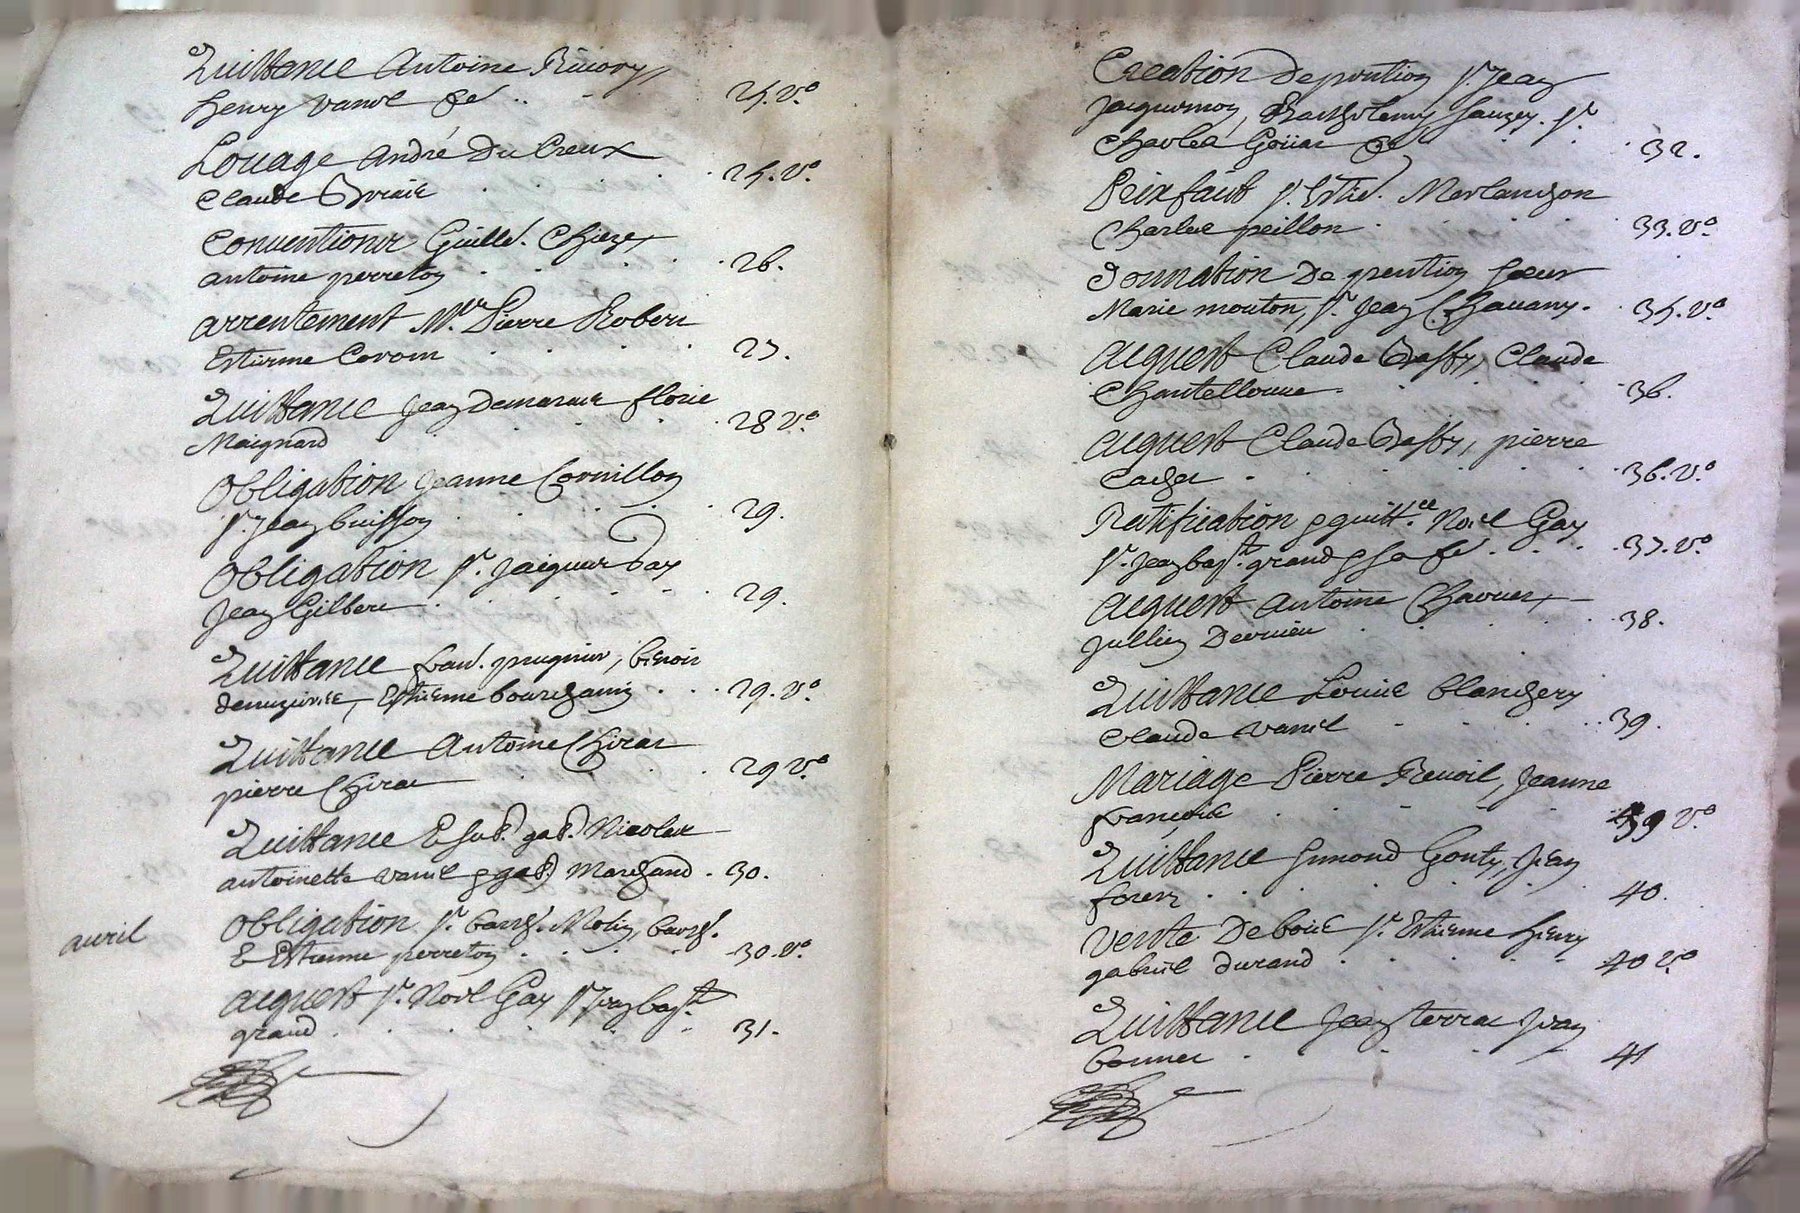 Quittance Antoine Riuory
henry vanol &c. .. - 25. v.º
Louage André Du Creux
Claude . . . . 25. v.º
Conventions Guille. Chieze
antoine perreton . . . . 26.
arrentement Mre. Pierre Robert
Estienne Coront . . . . 27.
Quittance Jean Demarare florie
Maignard . . . . 28 v.º
Obligation Jeanne Cornillon
sr. Jean buisson . . . . 29.
Obligation sr. Jacques Day
Jean Gilbert . . . . 29.
Quittance fran. prugnier, benoit
Estienne bourchanin . . . 29. v.º
Quittance Antoine Chirat
pierre Chirat . . . . 29 v.º
Quittance gab. Nicolas
antoinette vanel p gab. Marchand . 30.
avril
Obligation sr. barth. Molin, barth.
& Estienne perreton . . . . 30. v.º
acquest sr. Noel Gay sr Jean bapt.
grand . . . . 31.
Creation de pention sr. Jean
Jacquemon, Barthelemy sauzey. sr.
Charles Goüat &c . 32.
Prixfait sr. Estie. Marlanchon
Charles peillon . . . . 33. v.º
Donnation De pention soeur
Marie mouton, sr. Jean Chavany. . 35. v.º
acquest Claude Basty, Claude
Chantelloue . . . . 36.
acquest Claude Basty, pierre
Cachet . . . . 36. v.º
Ratification p quittce. Noel Gay
sr. Jean bapt. grand p sa fe . . . 37. v.º
acquest Antoine Chavier,
Jullien Dervieu . . . . 38.
Quittance Louis blanchery
Claude vanel . . . . 39.
Mariage Pierre Benoit, Jeanne
françoise . . . . 39 v.º
Quittance simond Gonty, Jean
forest . . . . 40.
vente De bois sr. Estienne henry
gabriel durand . . . . 40 v.º
Quittance Jean terrat Jean
bonnet . . . . 41